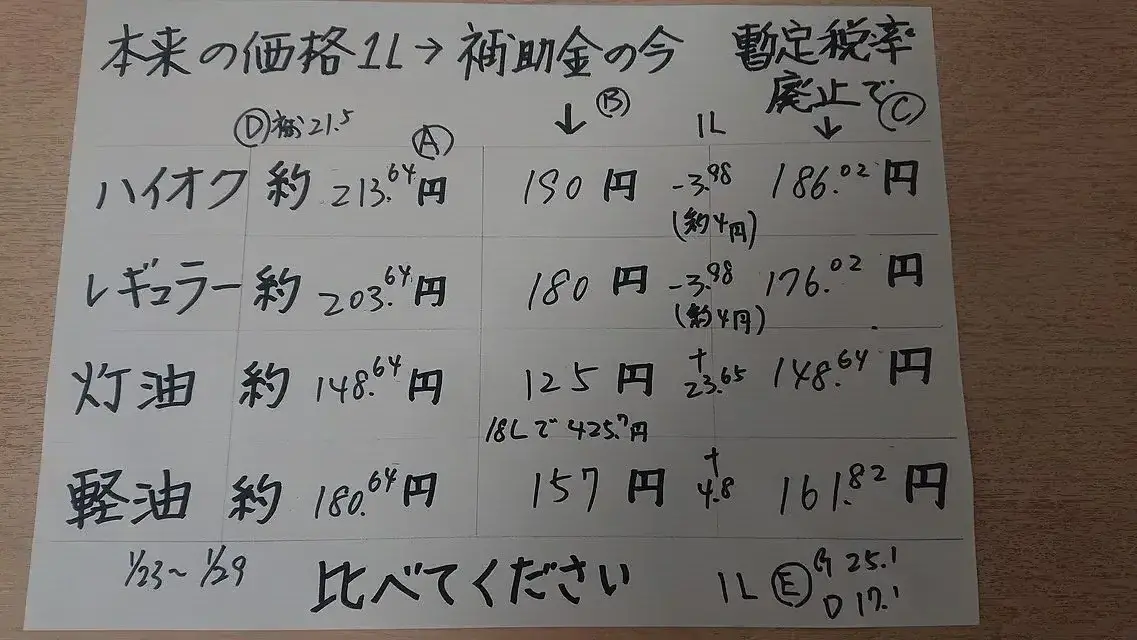 本来の価格1L→補助金の今 暫定税率
廃止で
Ⓓ補助21.5 Ⓐ ↓ Ⓑ 1L ↓ Ⓒ
ハイオク 約 213.64円 190円 -3.98 186.02円
(約4円)
レギュラー 約 203.64円 180円 -3.98 176.02円
(約4円)
灯油 約 148.64円 125円 +23.65 148.64円
18Lで425.7円
軽油 約 180.64円 157円 +4.8 161.82円
1/23～1/29 比べてください 1L Ⓔ G 25.1
D 17.1